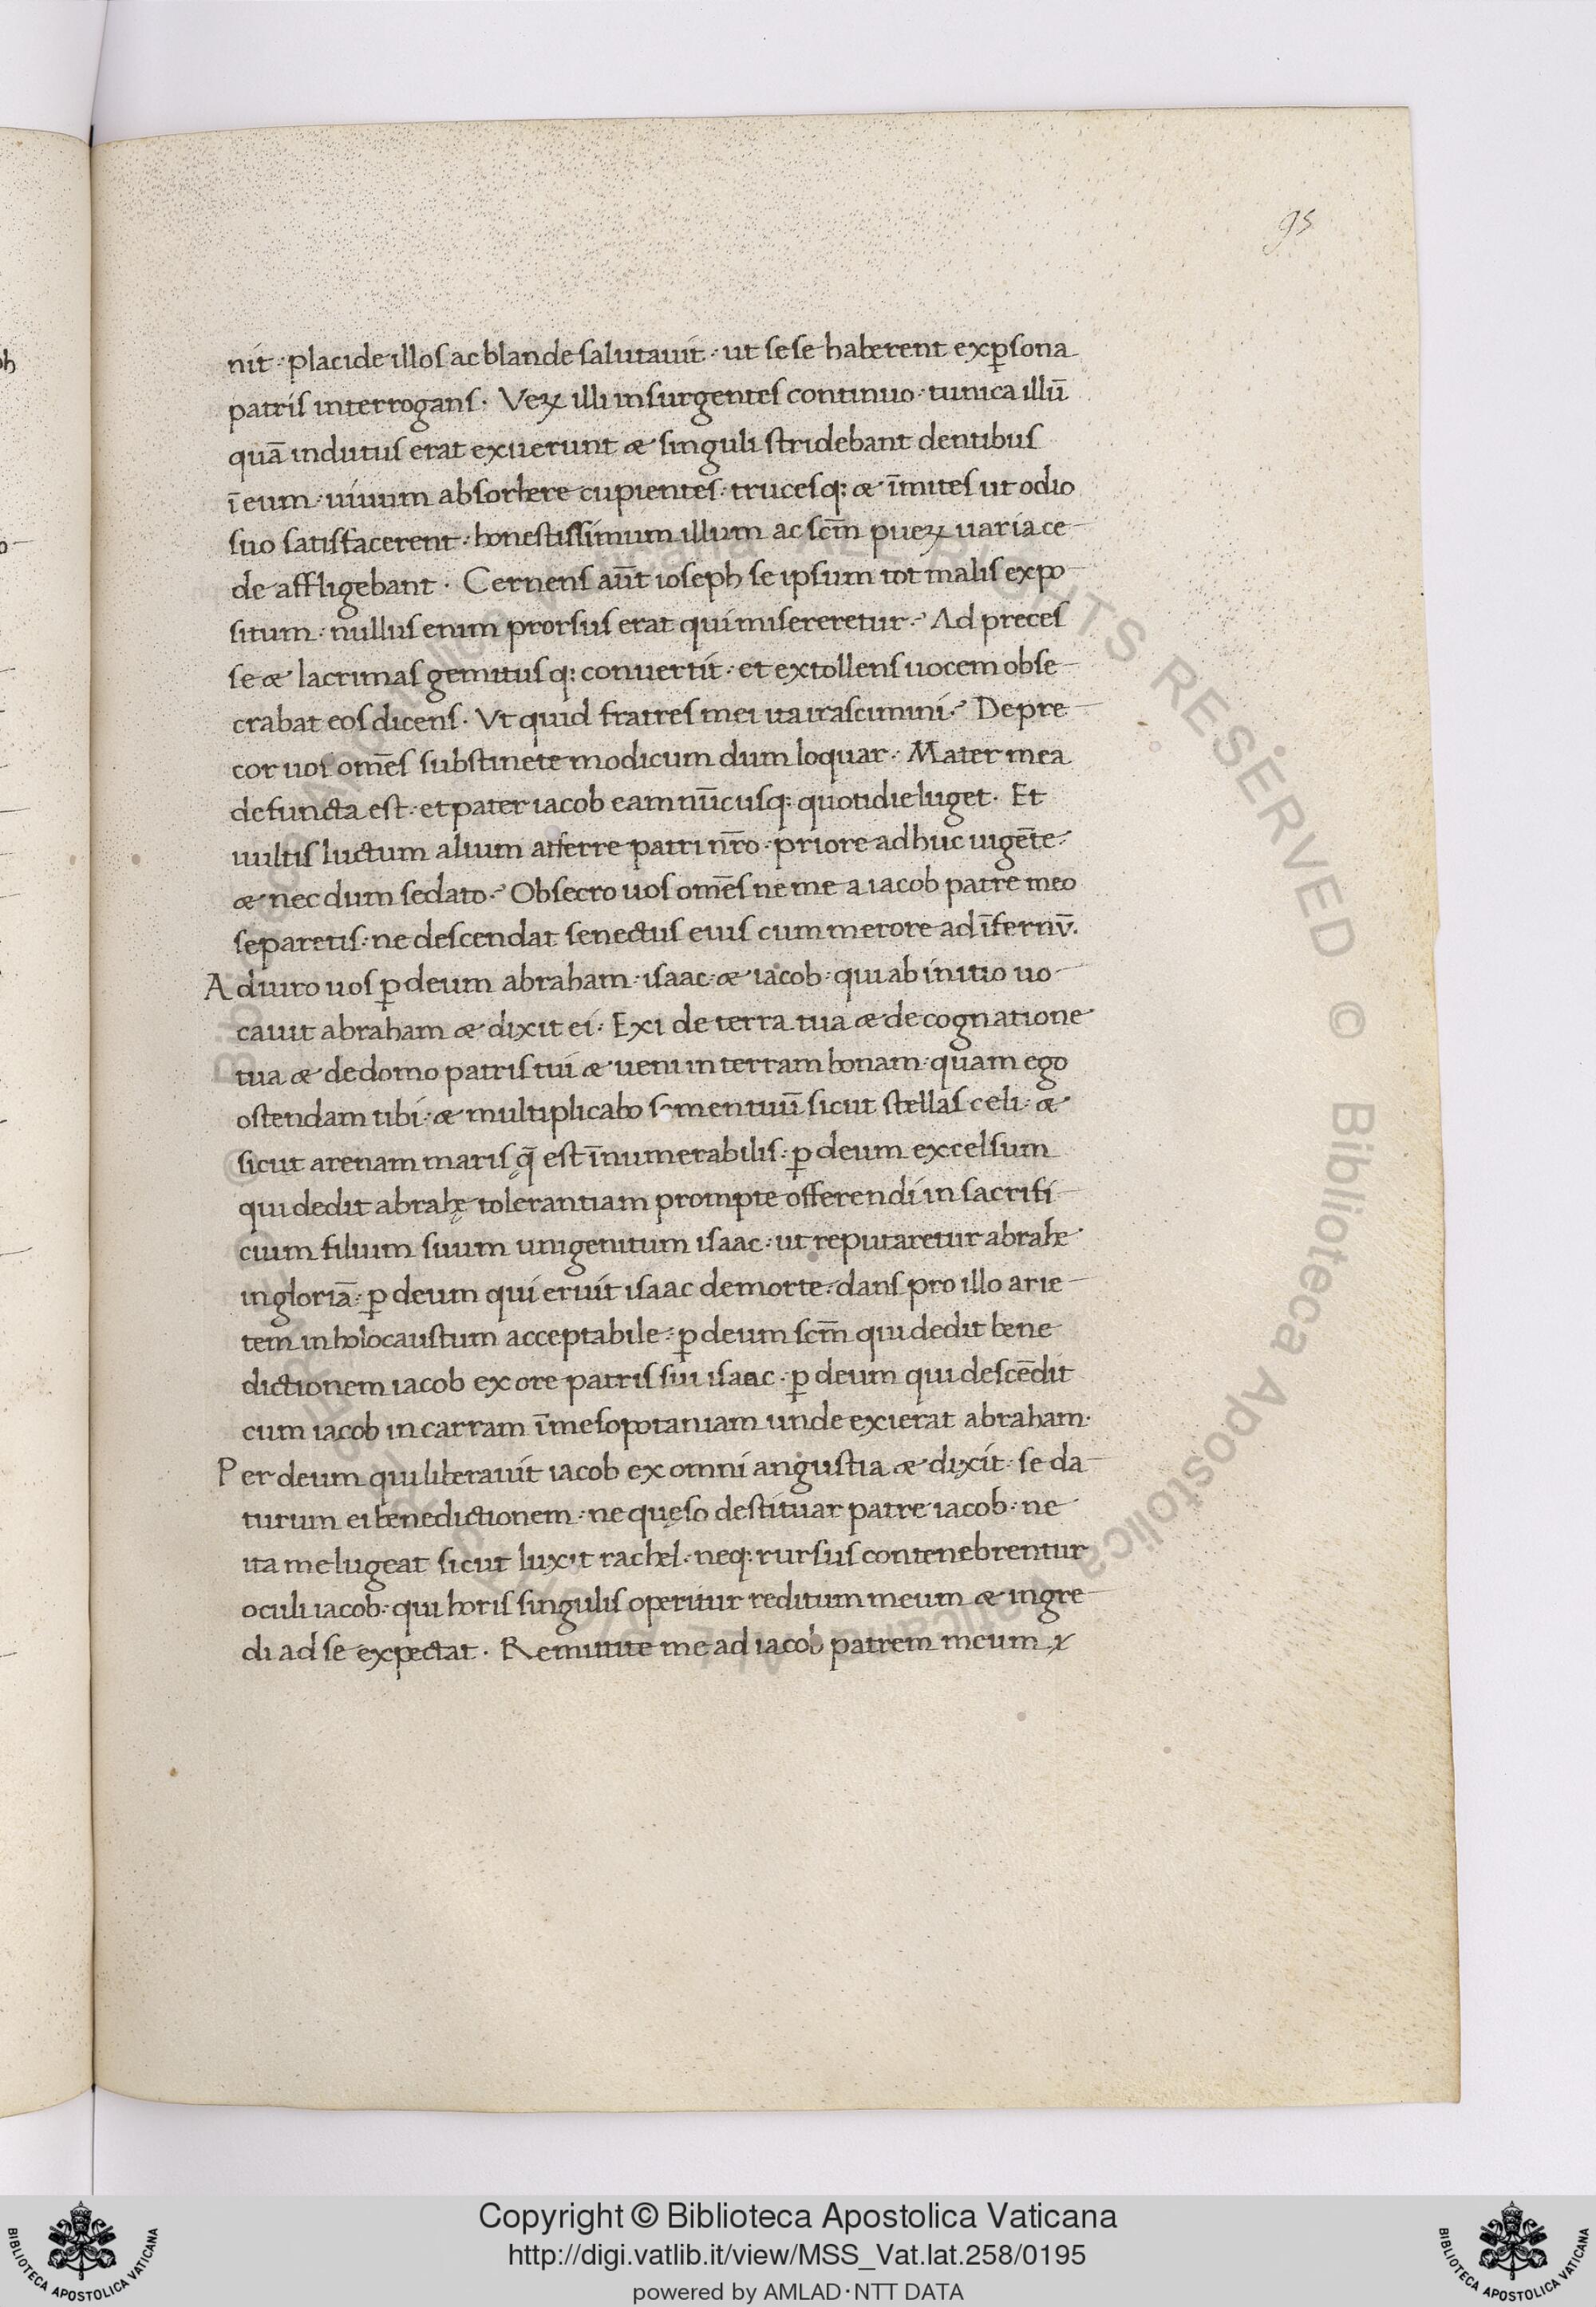 95
nit · placide illos ac blande salutauit · ut sese haberent ex ꝑsona
patris interrogans · Veꝝ illi insurgentes continuo · tunica illū
quā indutus erat exuerunt & singuli stridebant dentibus
ī eum · uiuum absorbere cupientes · trucesq; & īmites ut odio
suo satisfacerent · honestissimum illum ac scm̄ pueꝝ uaria ce
de affligebant · Cernens aūt ioseph se ipsum tot malis expo
situm · nullus enim prorsus erat qui misereretur · Ad preces
se & lacrimas gemitusq; conuertit · et extollens uocem obse
crabat eos dicens · Vt quid fratres mei ita irascimini · Depre
cor uos om̄es substinete modicum dum loquar · Mater mea
defuncta est · et pater iacob eam nūcusq; quotidie luget · Et
uultis luctum alium afferre patri nr̄o · priore adhuc uigēte
& nec dum sedato · Obsecro uos om̄es ne me a iacob patre meo
separetis · ne descendat senectus eius cum merore ad īfernū.
Adiuro uos ꝑ deum abraham · isaac · & iacob · qui ab initio uo
cauit abraham & dixit ei · Exi de terra tua & de cognatione
tua & de domo patris tui & ueni in terram bonam · quam ego
ostendam tibi · & multiplicabo semen tuū sicut stellas celi · &
sicut arenam maris q̄ est īnumerabilis · ꝑ deum excelsum
qui dedit abrahę tolerantiam prompte offerendi in sacrifi
cium filium suum unigenitum isaac · ut reputaretur abrahe
in gloriā · ꝑ deum qui eruit isaac de morte · dans pro illo arie
tem in holocaustum acceptabile · ꝑ deum scm̄ qui dedit bene
dictionem iacob ex ore patris sui isaac · ꝑ deum qui descēdit
cum iacob in carram ī mesopotaniam unde exierat abraham ·
Per deum qui liberauit iacob ex omni angustia & dixit · se da
turum ei benedictionem · ne quęso destituar patre iacob · ne
ita me lugeat sicut luxit rachel · neq; rursus contenebrentur
oculi iacob · qui horis singulis operitur reditum meum & ingre
di ad se expectat · Remittite me ad iacob patrem meum
Copyright © Biblioteca Apostolica Vaticana
http://digi.vatlib.it/view/MSS_Vat.lat.258/0195
powered by AMLAD·NTT DATA